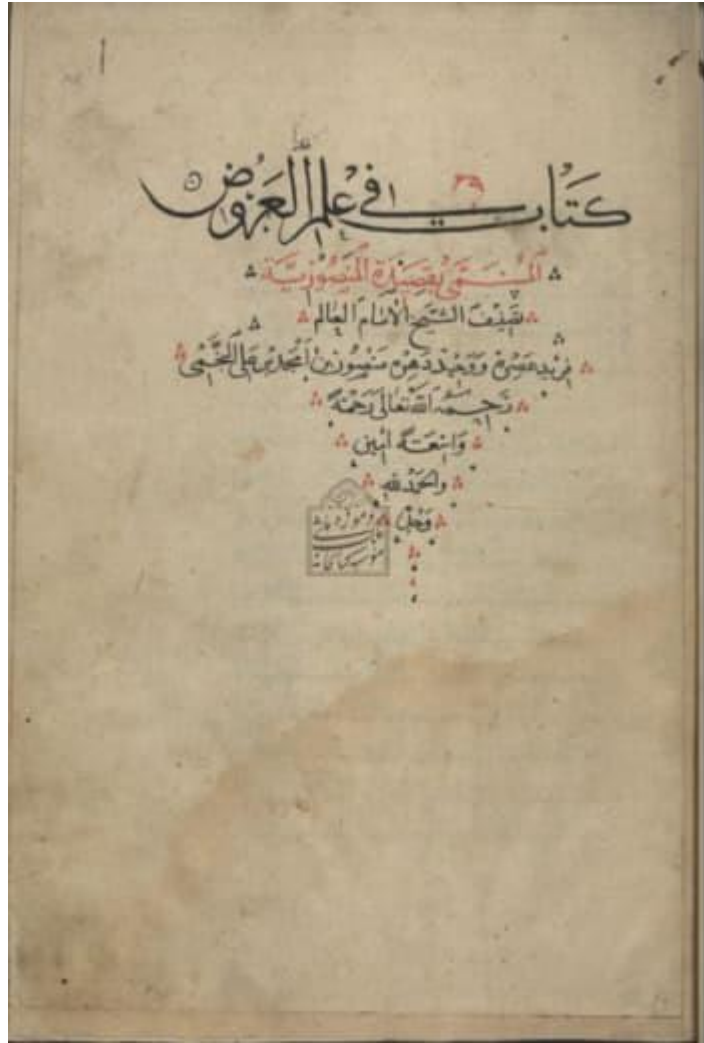 كتاب في علم العروض
المسمى بقصيدة المنصورية
تصنيف الشيخ الامام العالم
فريد عصره ووحيد دهره منصور بن محمد بن علي
رحمه الله تعالى رحمة
واسعة امين
والحمد لله
وحده